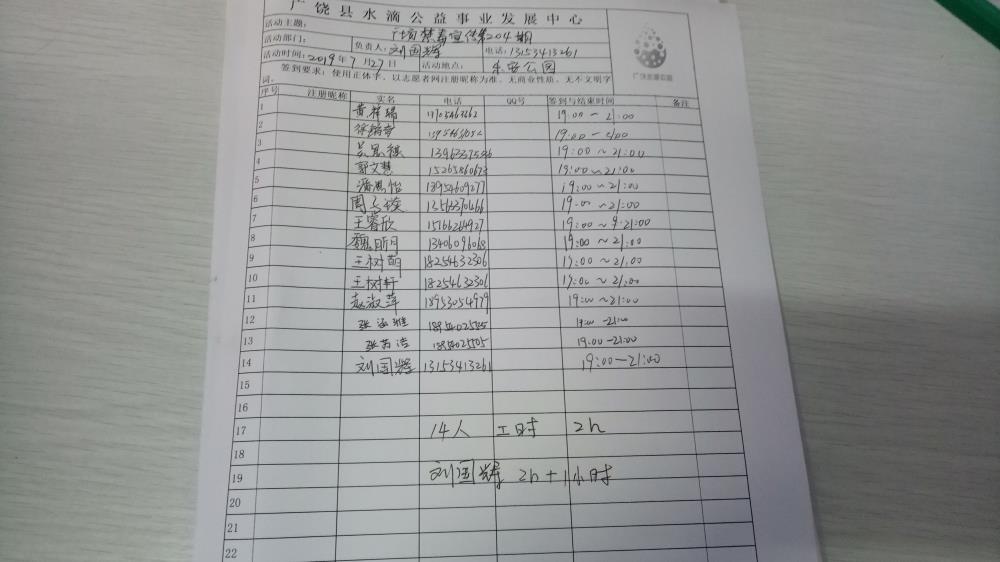 广饶县水滴公益事业发展中心
活动主题: 广场禁毒宣传第204期
活动部门: 负责人: 刘国辉 电话: 13153413261
活动时间: 2019年7月27日 活动地点: 乐安公园
签到要求: 使用正体字, 以志愿者网注册昵称为准, 无商业性质, 无不文明字
词。
序号 注册昵称 实名 电话 QQ号 签到与结束时间 备注
1 19:00 - 21:00
2 19:00
3 19:00 ~ 21:00
4 郭文慧 15265860673 19:00 ~ 21:00
5 潘思怡 18954609277 19:00 ~ 21:00
6 13563370466 19:00 ~ 21:00
7 王睿欣 15166264927 19:00 ~ 21:00
8 魏昕月 13406096068 19:00 ~ 21:00
9 王树萌 18254632306 19:00 ~ 21:00
10 王树轩 18254632306 19:00 ~ 21:00
11 赵淑萍 18953054979 19:00 ~ 21:00
12 张涵雅 19:00 - 21:00
13 张芮洁 19:00 - 21:00
14 刘国辉 13153413261 19:00 - 21:00
15
16
17 14人 工时 2h
18
19 刘国辉 2h + 1小时
20
21
22